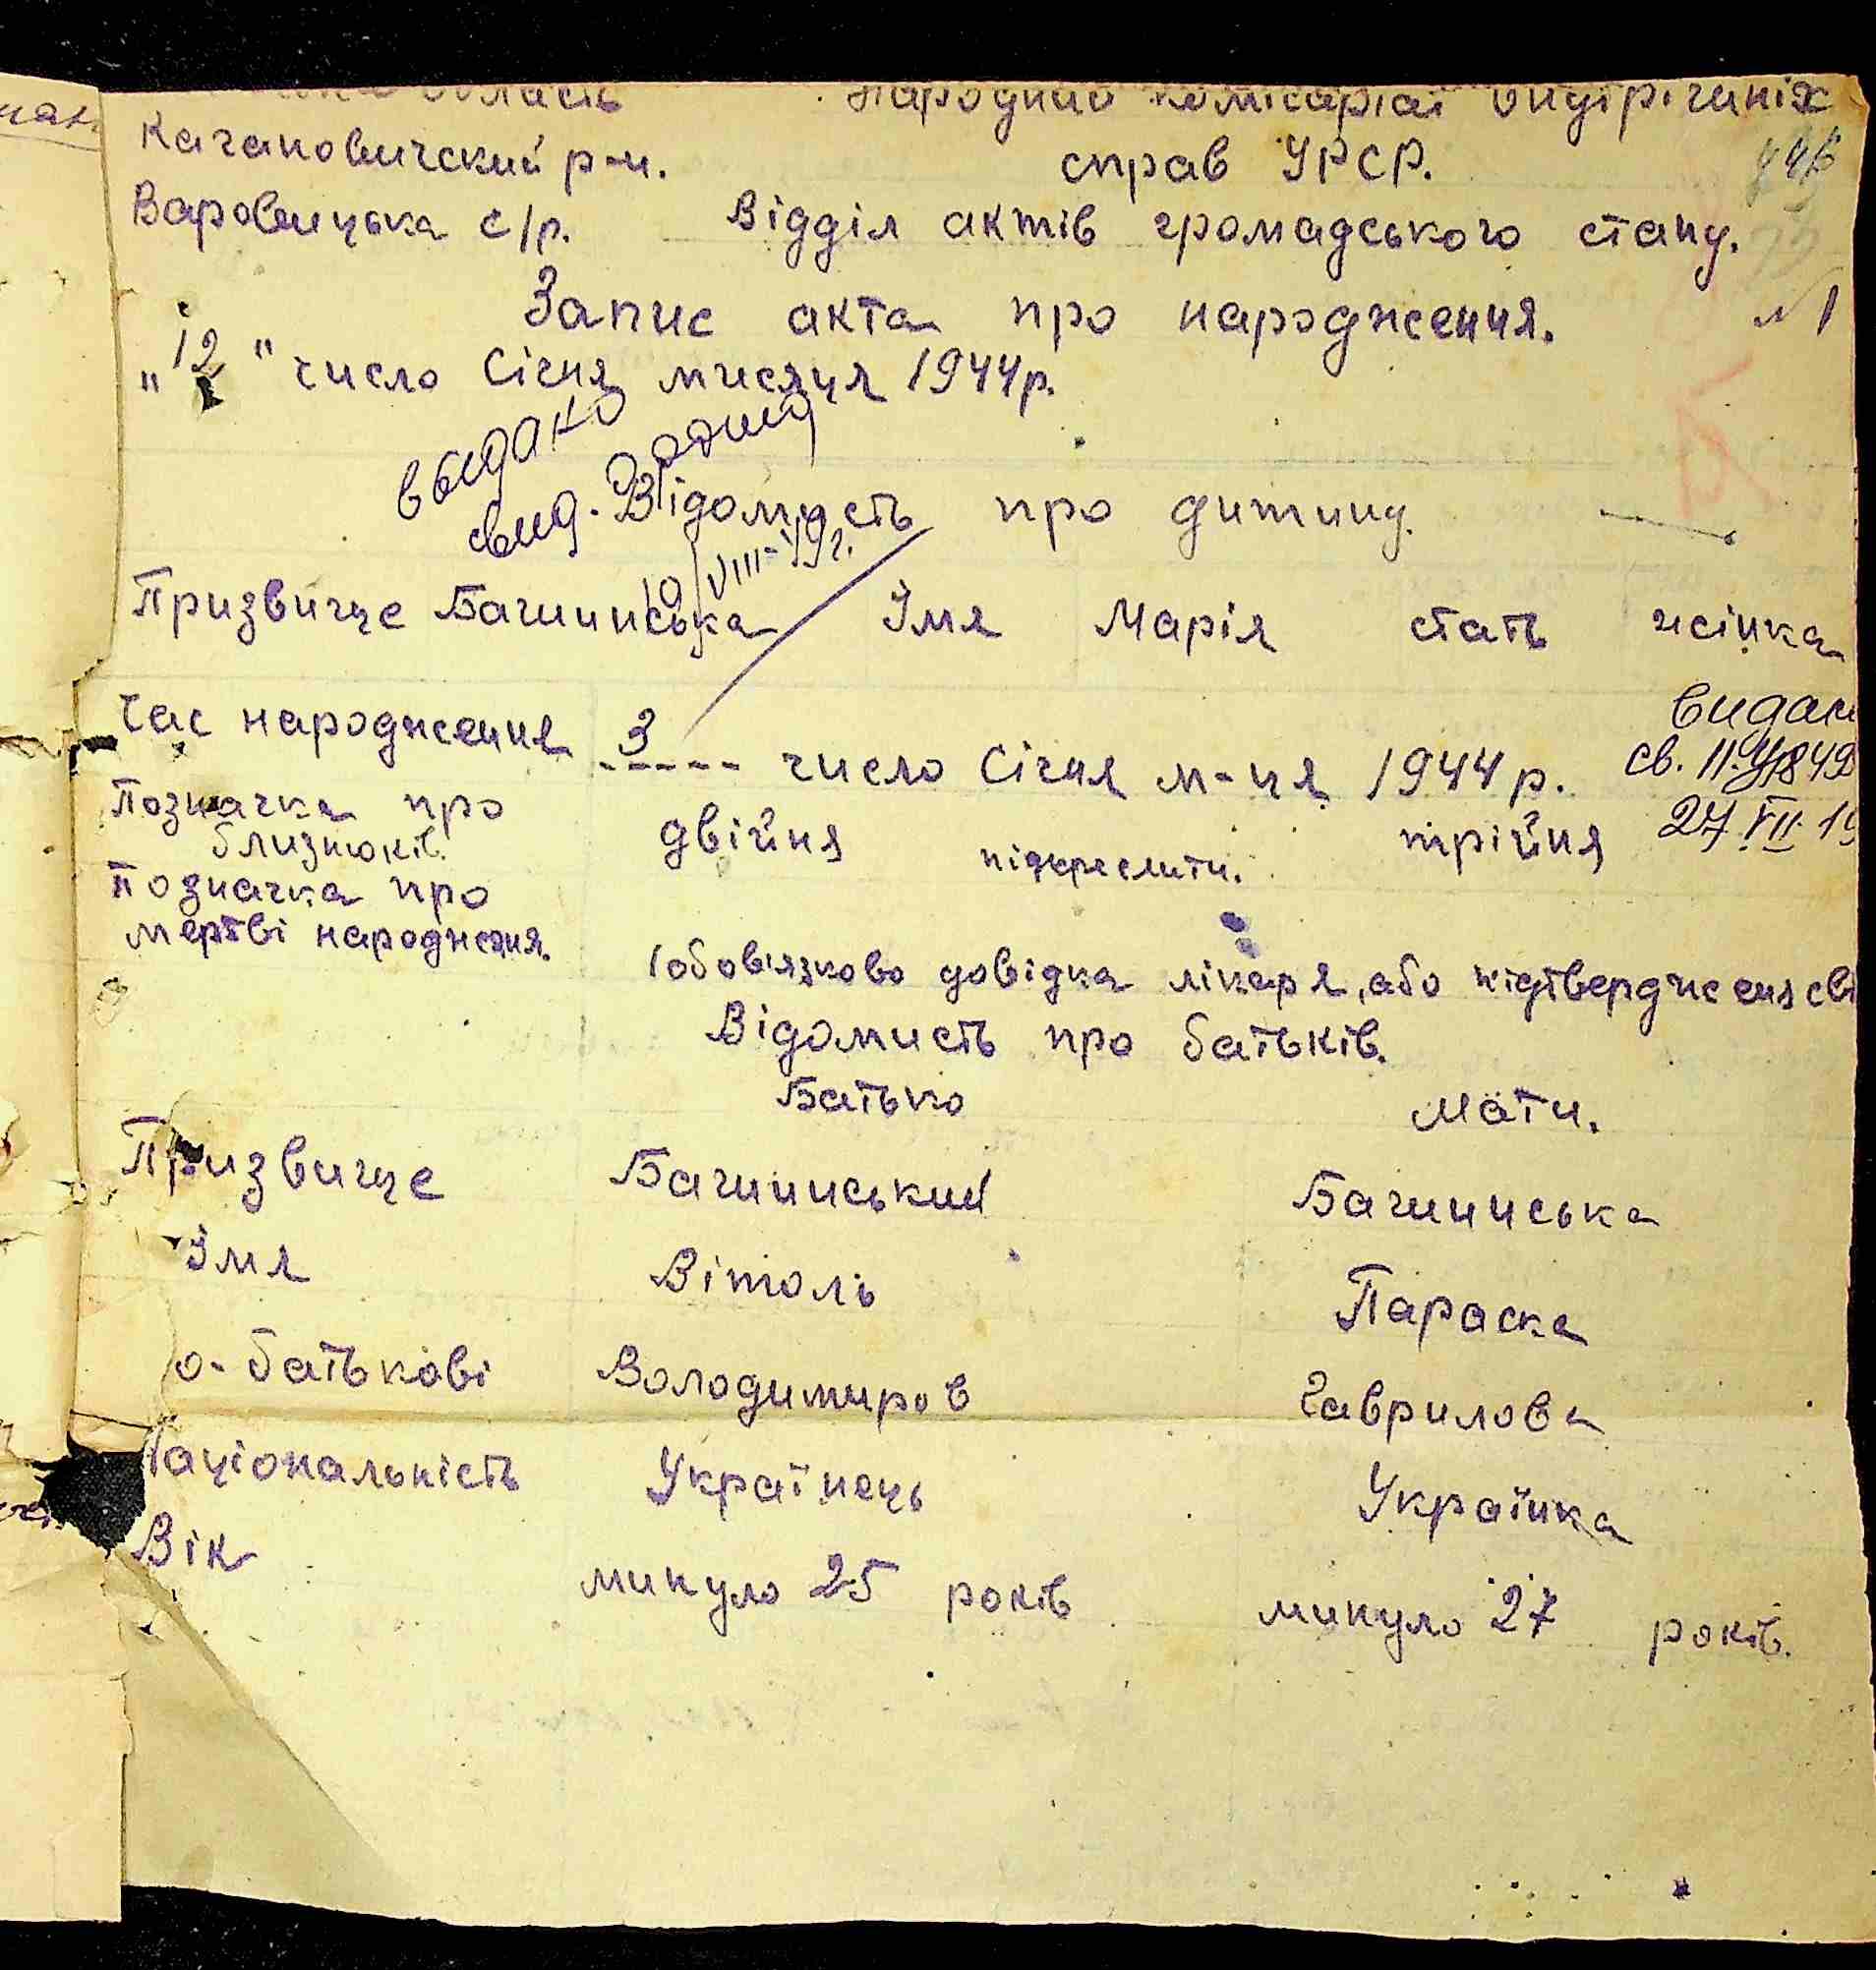 область Народний комісаріат внутрішніх
Кагановичский р-н. справ УРСР.
Варовицька с/р. Відділ актів громадського стану.
Запис акта про народження. №1
"12" число Січня мисяця 1944р.
выдано
свид.
Відомисть про дитину.
10/VIII-49г.
Призвище Бачинська Імя Марія стать жінка
Час народження 3 число Січня м-ця 1944р.
видан
св. II
27 VII 19
Позначка про близнюків. двійня підкреслити. трійня
Позначка про
мертві народження.
(обовязково довідка лікаря, або підтвердження сві
Відомисть про батьків.
Батько Мати.
Призвище Бачинський Бачинська
Імя Віталь Параска
о-батькові Володимиров Гаврилова
аціональність Українець Українка
Вік минуло 25 років минуло 27 років.